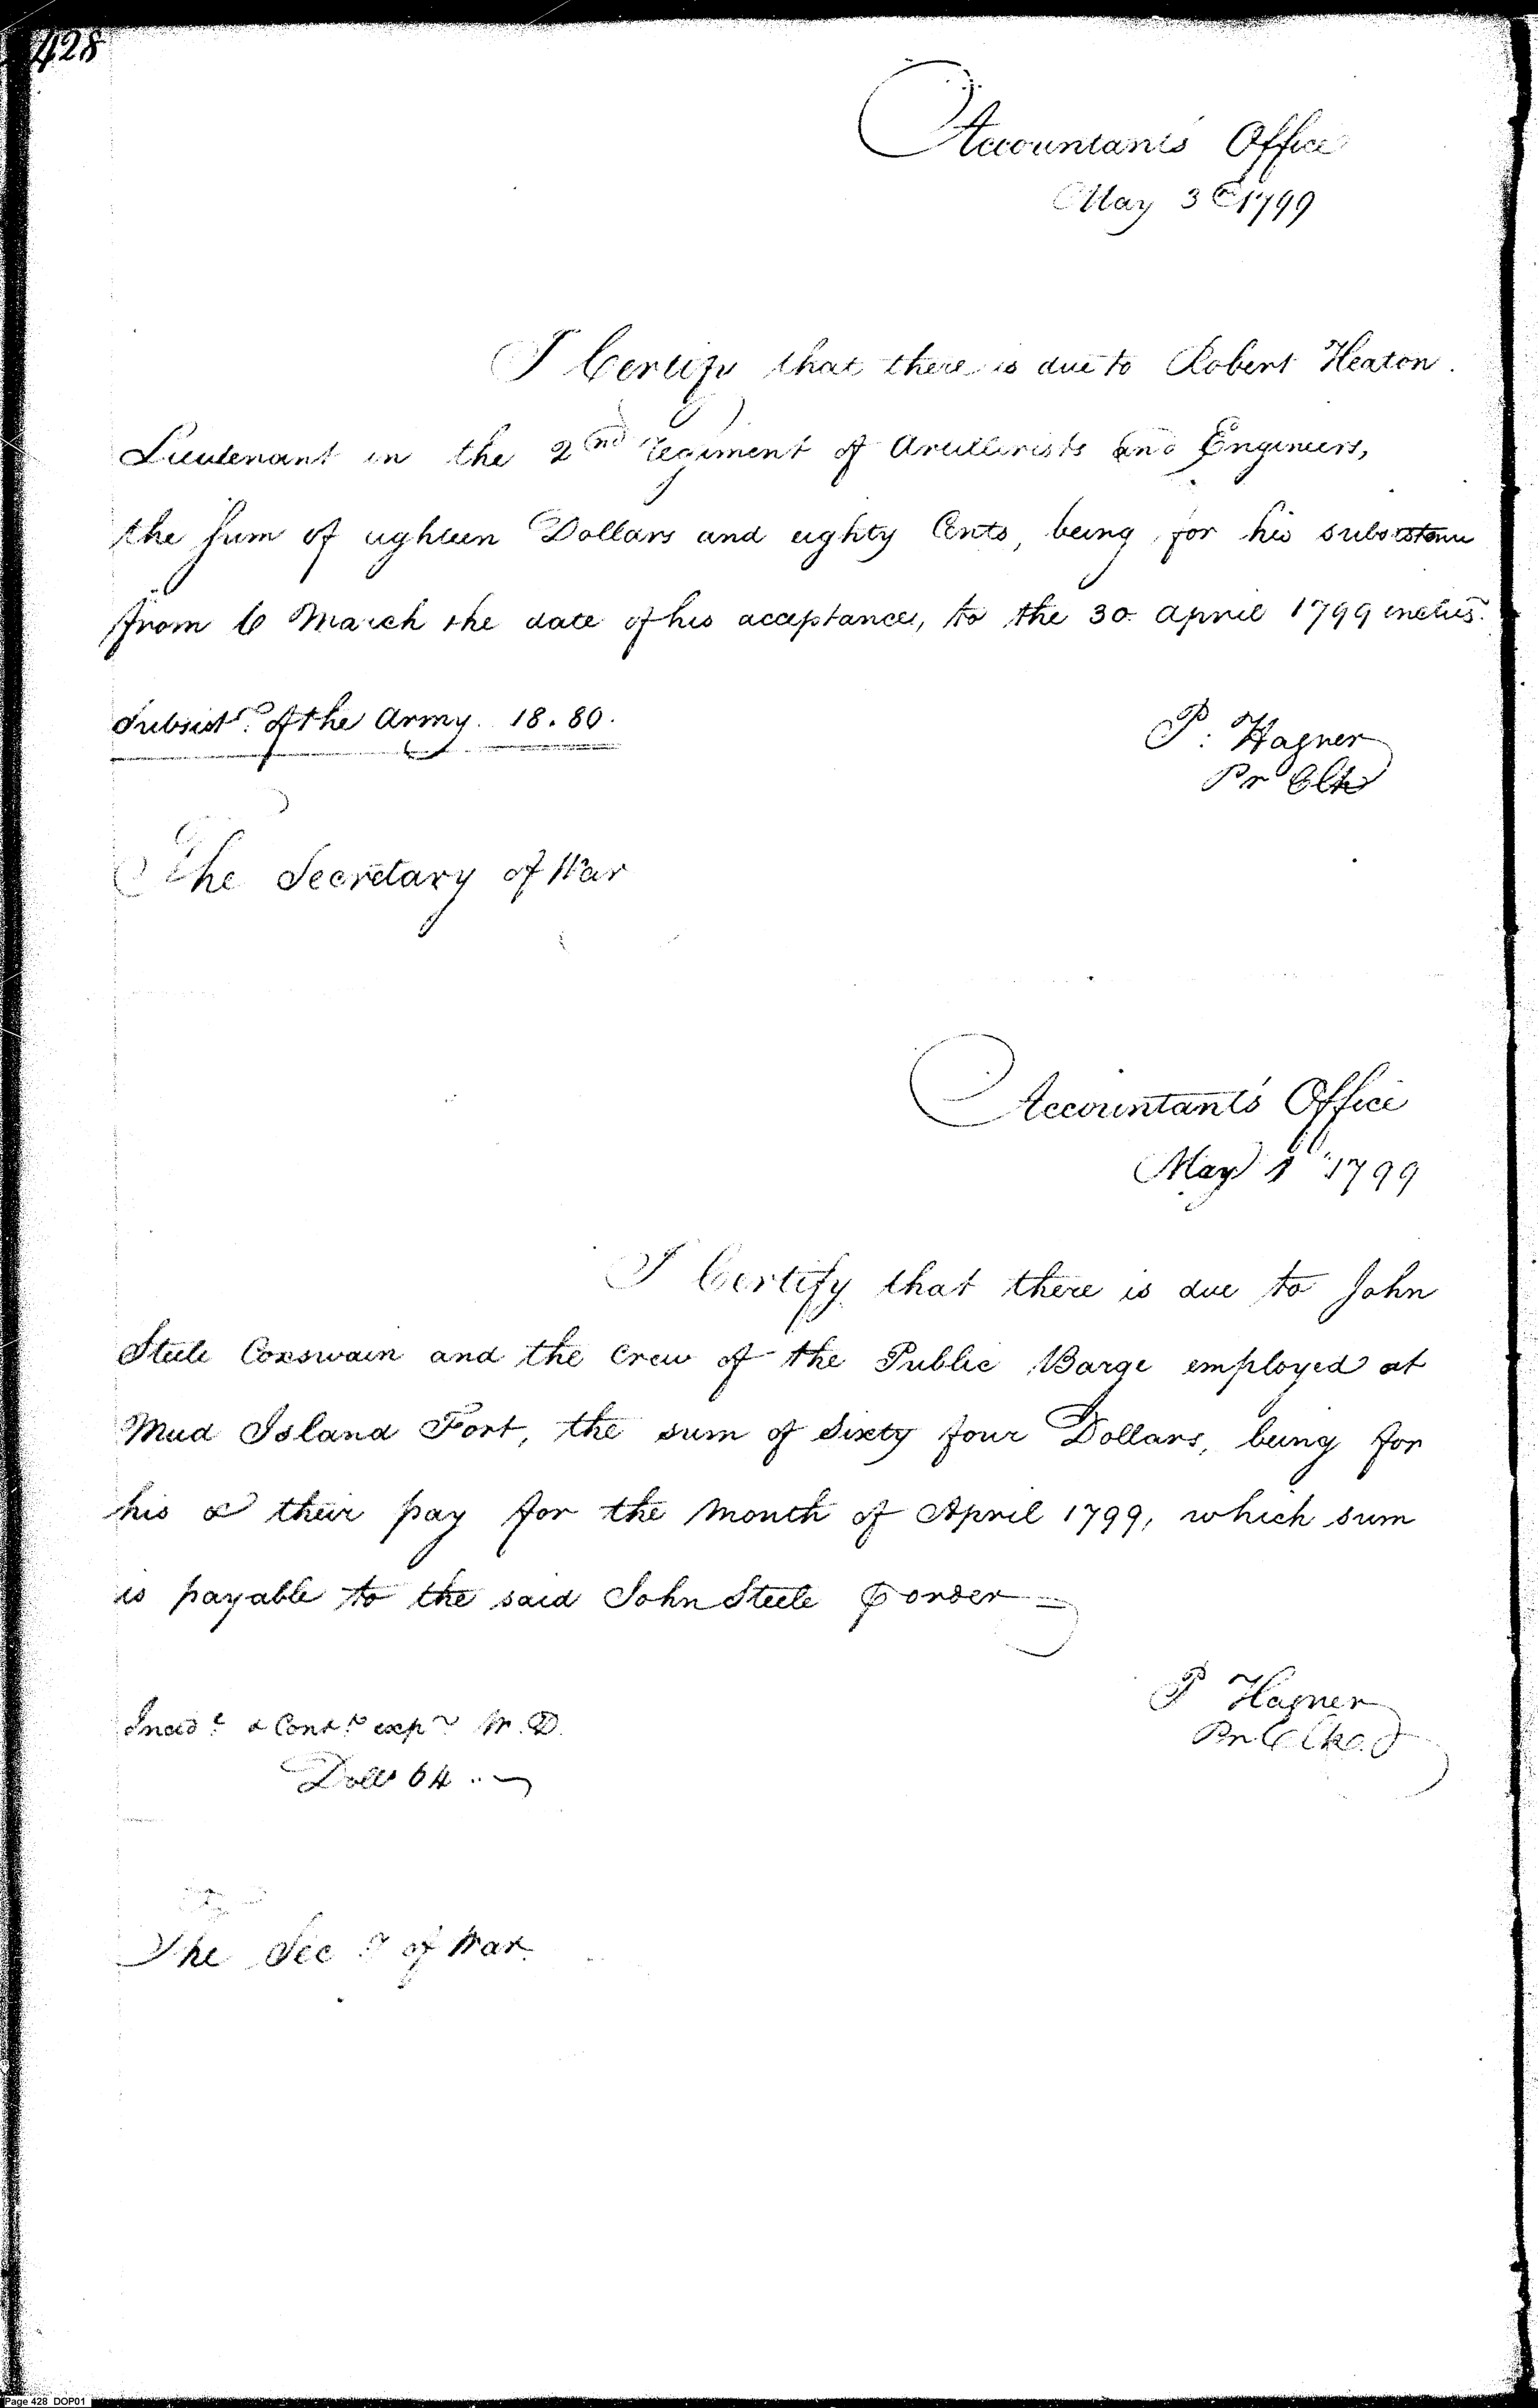 428
Accountants Office
May 3d 1799
I Certify that there is due to Robert Heaton.
Lieutenant in the 2nd regiment of Artillerists and Engineers,
the sum of eighteen Dollars and eighty Cents, being for his subsistence
from 6 March the date of his acceptance, to the 30 April 1799 inclus.
Subsistce. of the Army. 18.80.
P: Hagner
Pr Clk
The Secretary of War
Accountant's Office
May 1 1799
I Certify that there is due to John
Steele Coxswain and the Crew of the Public Barge employed at
Mud Island Fort, the sum of Sixty four Dollars, being for
his & their pay for the Month of April 1799, which sum
is payable to the said John Steele order
P Hagner
Pr Clk
Incidt & Contt exps W. D.
Dolls 64 ..
The Secy of War.
Page 428 DOP01